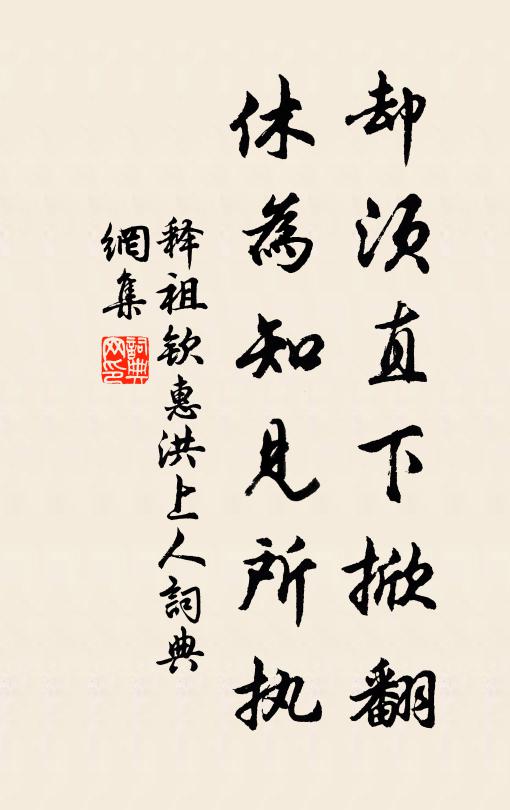 却须直下掀翻
休為知见所执
释祖钦惠洪上人詞典
網集
詞典網印